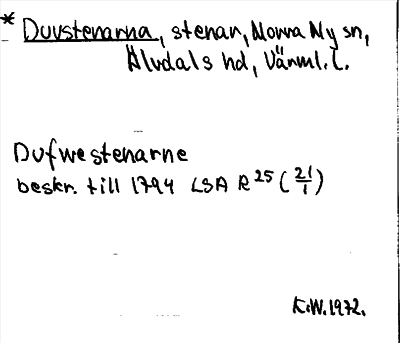 * Duvstenarna, stenar, Norra Ny sn,
Älvdals hd, Värml. l.
Dufwestenarne
beskr. till 1794 LSA R 25 (21/1)
K.W. 1972.